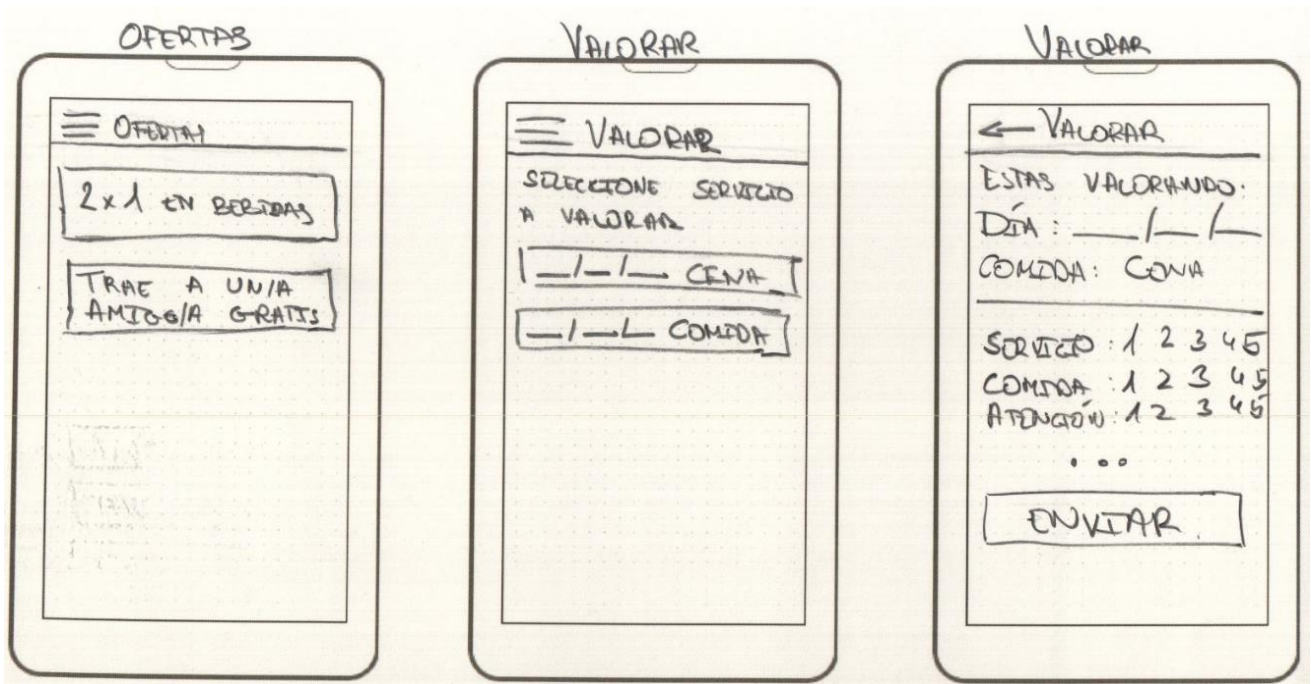 OFERTAS
OFERTAS
2x1 EN BEBIDAS
TRAE A UN/A
AMIGO/A GRATIS
VALORAR
VALORAR
SELECCIONE SERVICIO
A VALORAR
__/__/__ CENA
__/__/__ COMIDA
VALORAR
VALORAR
ESTAS VALORANDO:
DÍA: __/__/__
COMIDA: CENA
SERVICIO: 1 2 3 4 5
COMIDA: 1 2 3 4 5
ATENCIÓN: 1 2 3 4 5
...
ENVIAR